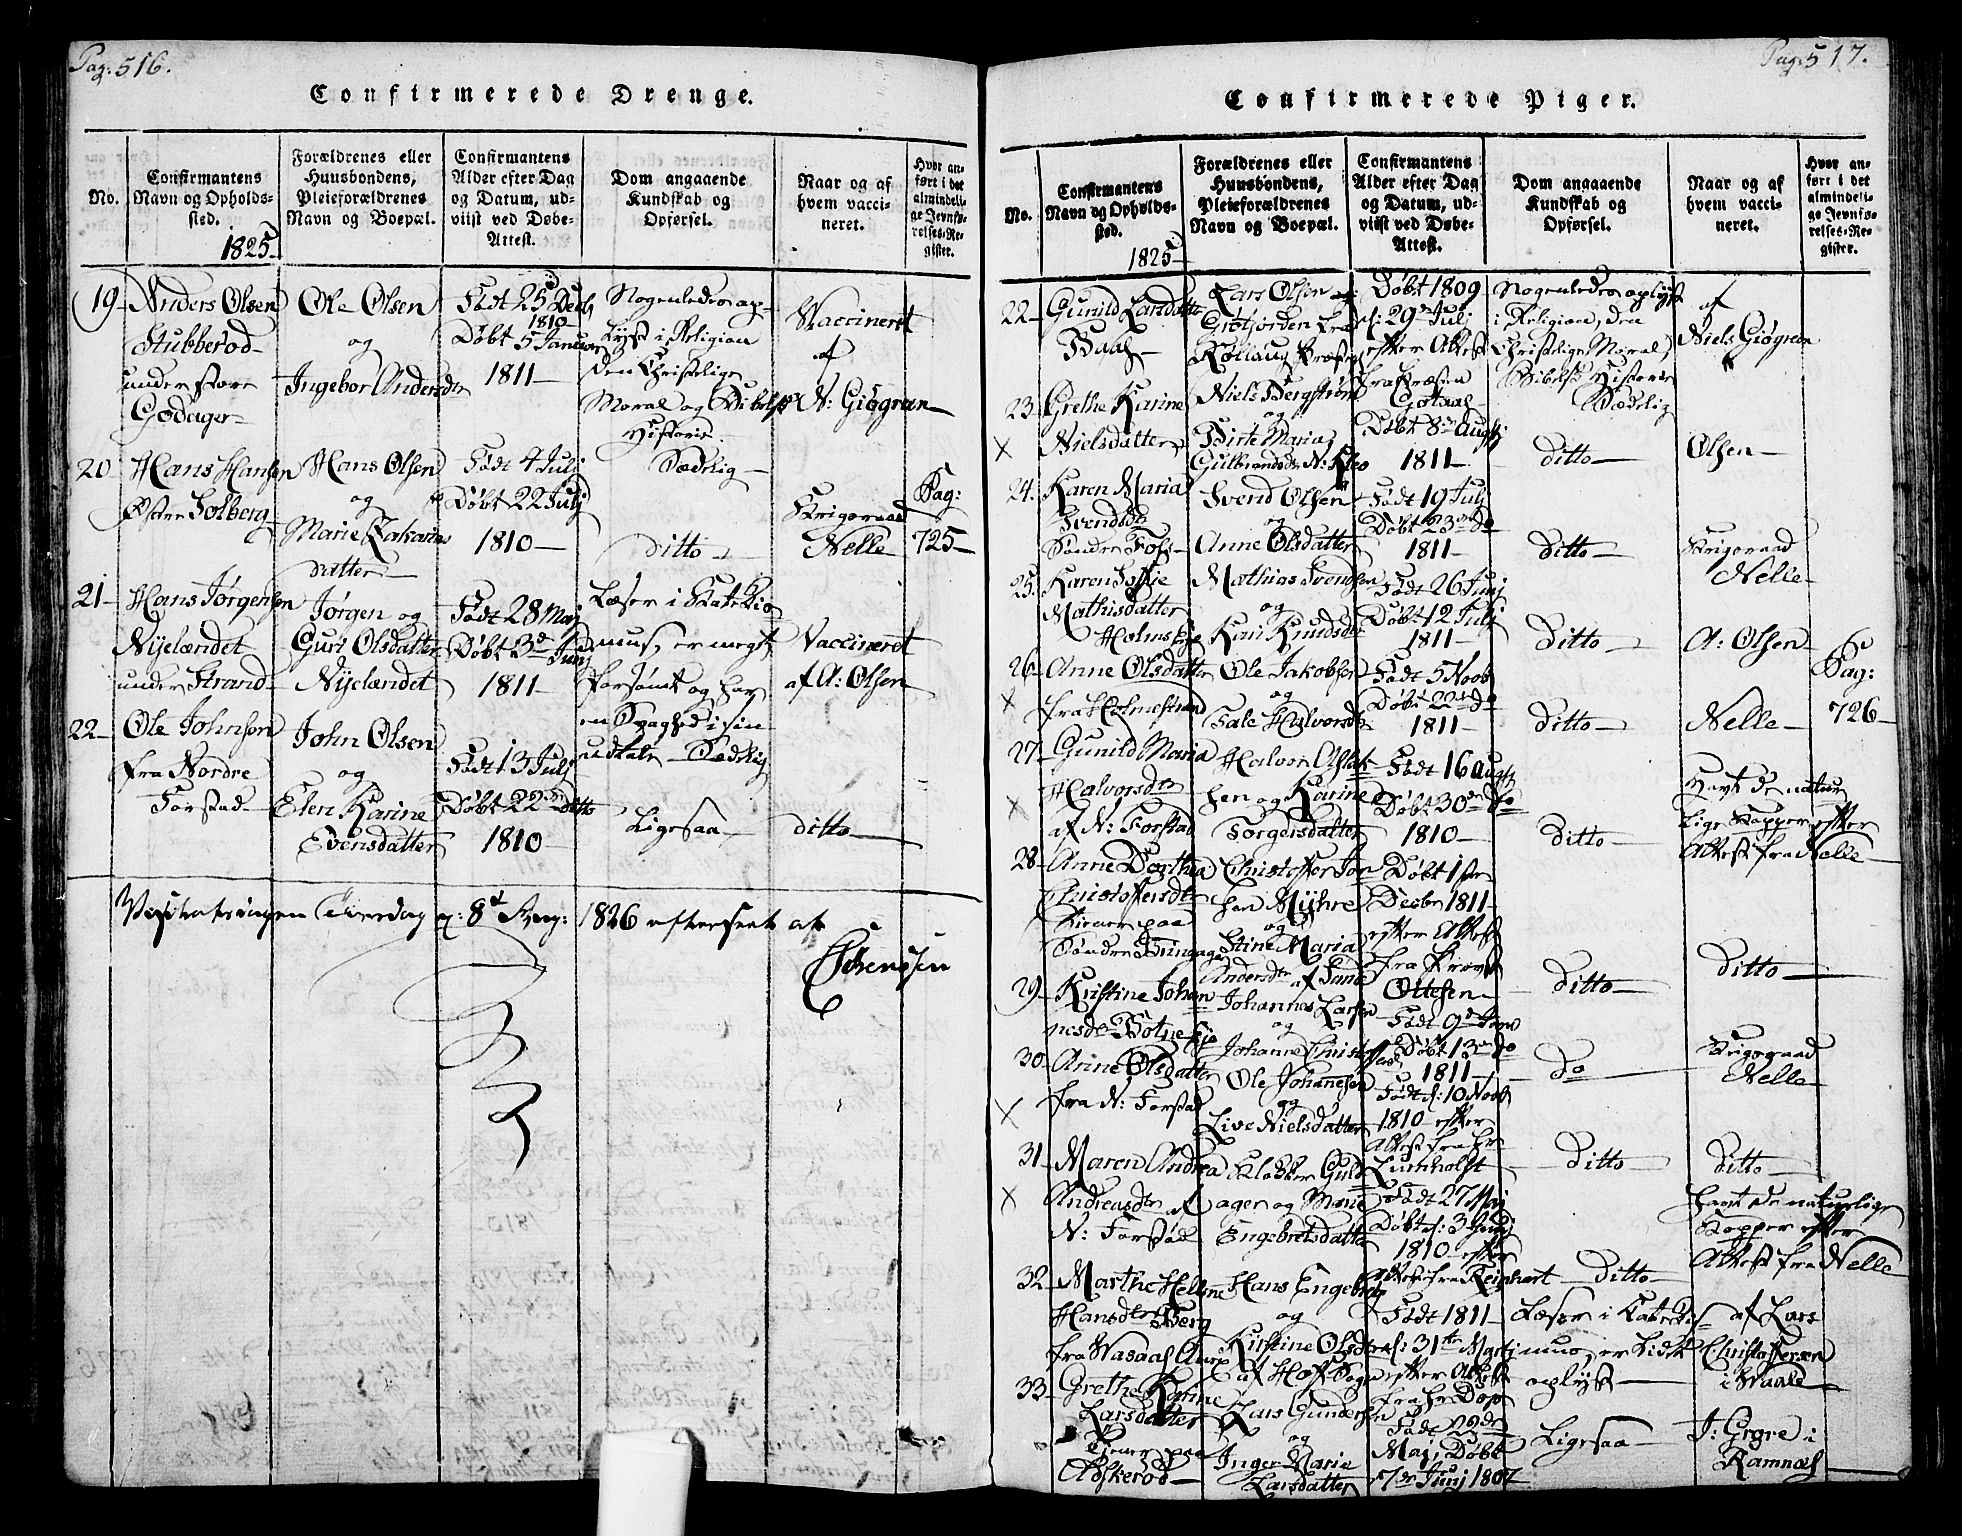 Pag: 516.
Confirmerede Drenge.
No.
Confirmantens Navn og Opholds-sted.
1825
Forældrenes eller Huusbondens, Pleieforældrenes Navn og Boepæl.
Confirmantens Alder efter Dag og Datum, ud-viist ved Døbe-Attest.
Dom angaaende Kundskab og Opførsel.
Naar og af hvem vacci-neret.
Hvor an-ført i det almindeli-ge Jevnfø-relses-Re-gister.
19
Anders Olsen
Stubberød
under store
Godager
Ole Olsen
og
Ingebor Andersdtr
Født 25d Decbr
1810
Døbt 5 Januar
1811
Nogenledes op-
lyst i Religion
den Christelige
Moral og Bibelsk
Historie.
Sædelig
Vaccineret
af
N: Giøgran
20
Hans Hansen
Østre Solberg
Hans Olsen
og
Marie Zakarias
datter
Født 4 Julj
Døbt 22 Julj
1810
ditto
Krigsraad
Nelle
Pag:
725
21
Hans Jørgensen
Nyelændet
under Strand
Jørgen og
Guri Olsdatter
Nyelændet
Født 28 Maj
Døbt 3d Junj
1811
Læser i Katekis
mus, er megt
forsømt og har
en Svaghed i sin
udtale Sædelig
Vaccineret
af A: Olsen
22
Ole Johnsen
fra Nordre
Forstad
John Olsen
og
Elen Karine
Evensdatter
Født 13 Julj
Døbt 22de Ditto
1810
Ligesaa
ditto
8d Aug: 1826 efterseet af
Sørenssen
Pag: 517.
Confirmerede Piger.
No.
Confirmantens Navn og Opholds-sted.
1825
Forældrenes eller Huusbondens, Pleieforældrenes Navn og Boepæl.
Confirmantens Alder efter Dag og Datum, ud-viist ved Døbe-Attest.
Dom angaaende Kundskab og Opførsel.
Naar og af hvem vacci-neret.
Hvor an-ført i det almindeli-ge Jevnfø-relses-Re-gister.
22
Gunild Larsdatter
Baas
Lars Olsen
Døbt 1809
d: 29de Julj
efter Attest
fra Præsten
Nogenledes oplyst
i Religion, den
Christelige Moral,
Bibelsk Historie
Sædelig
af
Niels Giøgran
23
Grethe Karine
Nielsdatter
Niels Bergstrøm
og
Birte Maria
Gulbrandsdtr N: Kleo
Døbt 8de Augstj
1811
ditto
Olsen
24.
Karen Maria
Svendsdtr
Søndre Foss
Svend Olsen
og
Anne Olsdatter
Født 19 Julj
Døbt 23de do
1811
ditto
Krigsraad
Nelle
25.
Karen Sofie
Mathisdatter
Holms Eje
Mathias Svendsen
og
Kari Knudsdtr
Født 26 Junj
Døbt 12 Julj
1811
Ditto
A: Olsen
26
Anne Olsdatter
fra Holmestrand
Ole Jakobsen
og
Tale Halvorsdtr
Født 5 Novb
Døbt 22de do
1811
Ditto
Nelle
Pag:
726
27
Gunild Maria
Halvorsdtr
af N: Forstad
Halvor Olsen
og Karine
Torgersdatter
Født 16 Augstj
Døbt 30de do
1810
Ditto
Havt de natur
lige Kopper efter
Attest fra Nelle
28
Anne Dorthea
Christoffersdtr
tiener paa
Søndre
Christoffer Jon
sen Myhre
og
Stine Maria
Andersdtr af Sande
Døbt 1ste
Decbr 1811
efter Attest
fra Provst
Ottesen
Ditto
Ditto
29
Kristine Johan
nesdtr Botne Eje
Johannes Larsen
og
Johanne Christoffersd
Født 9d Janv
Døbt 13de do
1811
Do
Krigsraad
Nelle
30
Anne Olsdatter
fra N: Forstad
Ole Johanesen
og
Live Nielsdatter
Født d: 10 Novb
1810 efter
Attest fra Hr
Lumholst
Ditto
Ditto
31
Maren Andrea
Andreasdtr af
N: Forstad
Klokker Guld
ager og Marie
Engebretsdatter
Født 27 Maj
Døbt d: 3 Junj
1810 efter
Attest fra Reinhart
Ditto
havt de naturlige
Kopper efter
Attest fra Nelle
32
Marthe Helene
Hansdtr Berg
fra Wasaas
Hans Engebrets
og
Kirstine Olsdtr
af Hof Sogn
Født 1811
d: 31te Martj
efter Attest
fra Hr Dop
Læser i Katekis
mus, er lidet
oplyst
af Lars
Christoffersen
i Waale
33
Grethe Karine
Larsdatter
tiener paa
Askerød
Lars Gundersen
og
Inger Marie
Larsdatter
Født 22de
Maj Døbt
7de Junj 1807
Ligesaa
J: Grgre i
Ramnæs